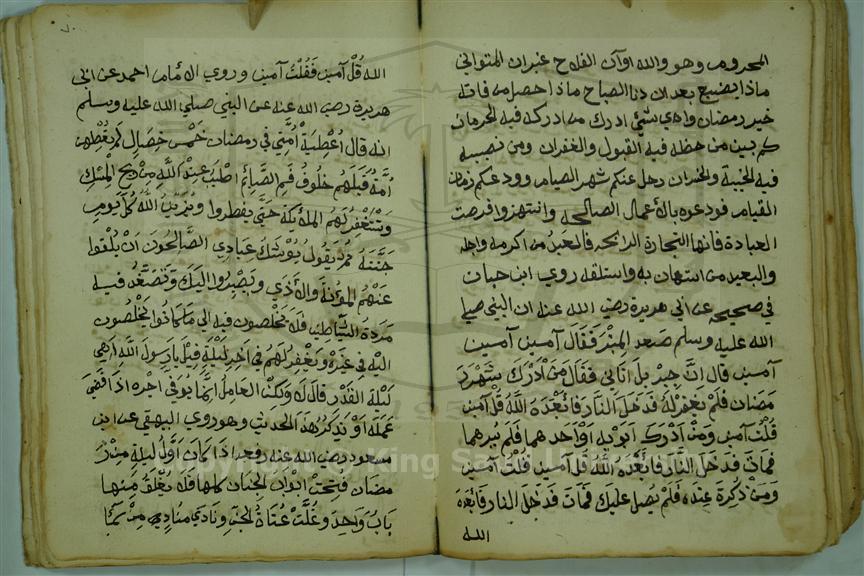 المحروم وهو والله اوان الفلاح غبران المتواني
ماذا يضيع بعد ان دنا الصباح ماذا حصل من فاته
خير رمضان واي شئ ادرك من ادركه فيه الحرمان
كم بين من حظه فيه القبول والغفران ومن نصيبه
فيه الخيبة والخسران رحل عنكم شهر الصيام وودعكم زمان
القيام فودعوه بالاعمال الصالحه وانتهزوا فرصت
العبادة فانها التجارة الرابحه فالسعيد من اكرمه واجله
والبعيد من استهان به واستثقله روي ابن حبان
في صحيحه عن ابي هريرة رضي الله عنه ان النبي صلي
الله عليه وسلم صعد المنبر فقال آمين آمين
آمين قال انَّ جبريل اتاني فقال من ادرك شهر ر
مضان فلم يغفر له فدخل النار فابعده الله قل آمين
قلت آمين ومن ادرك ابويه او احدهما فلم يبرهما
فمات فدخل النار فابعده الله قل آمين قلت آمين
ومن ذكرة عنده فلم يصل عليك فمات فدخل النار فابعده
الله
الله قُل آمين فقلت آمين وروي الامام احمد عن ابي
هريرة رضي الله عنه عن النبي صلي الله عليه وسلم
انه قال اُعطِيَة اُمَّتي في رمضان خمس خصال لم يعطهن
اُمَّة قبلهم خلوف فم الصَّائم اطيب عند الله من ريح المسك
وتستغفر لهم الملائكة حتي يفطروا ويزين الله كل يوم
جنَّته ثم يقول يوشك عبادي الصالحون ان يلقوا
عنهم المؤنة والاذي ويصيروا اليك وتصفد فيه
مردة الشياطين فلا يخلصون فيه الي ما كانوا يخلصون
اليه في غيره ويغفر لهم في اخر ليلة قيل يا رسول الله اهي
ليلة القدر قال لا ولكن العامل انما يوفي اجره اذا قضي
عمله او نذكر هذا الحديث وهو روي البيهقي عن ابن
مسعود رضي الله عنه رفعه اذا كان اوَّل ليلة من ر
مضان فتحت ابواب الجنان كلها فلا يغلق منها
باب واحد وغلَّت عتاة الجن ونادي منادي من